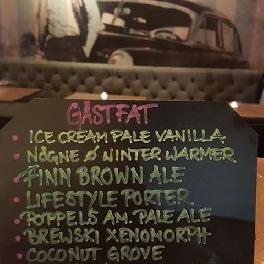 GÄSTFAT
• ICE CREAM PALE VANILLA
• NØGNE Ø WINTER WARMER
• FINN BROWN ALE
• LIFESTYLE PORTER
• POPPELS AM. PALE ALE
• BREWSKI XENOMORPH
• COCONUT GROVE